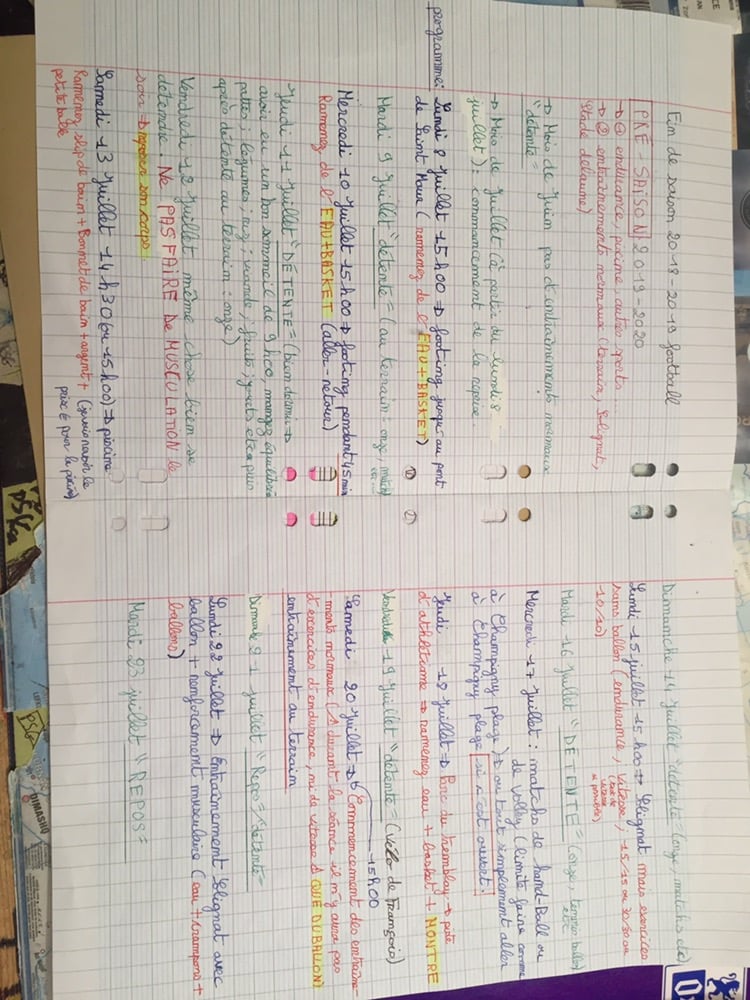 Fin de saison 2018-2019 football
PRÉ-SAISON 2019-2020
→ ① endurance, piscine autres sports
→ ② entraînements normaux (terrain, Selignat,
Stade delaune)
→ Mois de Juin pas d'entraînements normaux
"détente"
→ Mois de Juillet (à partir du lundi 8
juillet) : commencement de la reprise.
programme: Lundi 8 Juillet 15h00 → footing jusqu'au pont
de Saint Maur (ramenez de l'EAU+BASKET) ①
Mardi 9 Juillet "détente" (au terrain: onze, match
etc...
Mercredi 10 Juillet 15h00 → footing pendant 45 min
Ramenez de l'EAU+BASKET (aller-retour)
Jeudi 11 Juillet "DÉTENTE" (bien dormir →
avoir eu un bon sommeil de 9h00, mangez équilibré
pattes; légumes; riz; viande, fruits, yaourts etc puis
après détente au terrain: onze)
Vendredi 12 Juillet même chose bien se
détendre. Ne PAS FAIRE De MUSCULATION le
soir → reposer son corps.
Samedi 13 Juillet 14h30 (ou 15h00) → piscine
Ramenez slip de bain + Bonnet de bain + argent +
petite
prix pour la piscine
②
Dimanche 14 Juillet "détente" (onze, matchs etc)
Lundi 15 juillet 15h00 → Selignat mais exercices
sans ballon (endurance, Vitesse, 15/15 ou 30/30 ou
10/10)
vitesse
si possible)
Mardi 16 Juillet "DÉTENTE" (onze,
etc
Mercredi 17 Juillet: matchs de hand-Ball ou
de volley (limite faire comme
à Champigny plage) → ou tout simplement aller
à Champigny plage si c'est ouvert!
Jeudi 18 Juillet → Parc du tremblay → piste
d'athlétisme → ramenez eau + basket + MONTRE
Vendredi 19 Juillet "détente" (Vélo de François)
15h00
Samedi 20 Juillet → (Commencement des entraîne-
-ments normaux (⚠ durant la séance il n'y aura pas
d'exercices d'endurance, ni de vitesse QUE DU BALLON)
entraînement au terrain
Dimanche 21 Juillet "Repos/détente"
Lundi 22 Juillet → Entraînement Selignat avec
ballon + renforcement musculaire (eau + crampons +
ballons)
Mardi 23 juillet "REPOS"
PSG
DIMASHQ